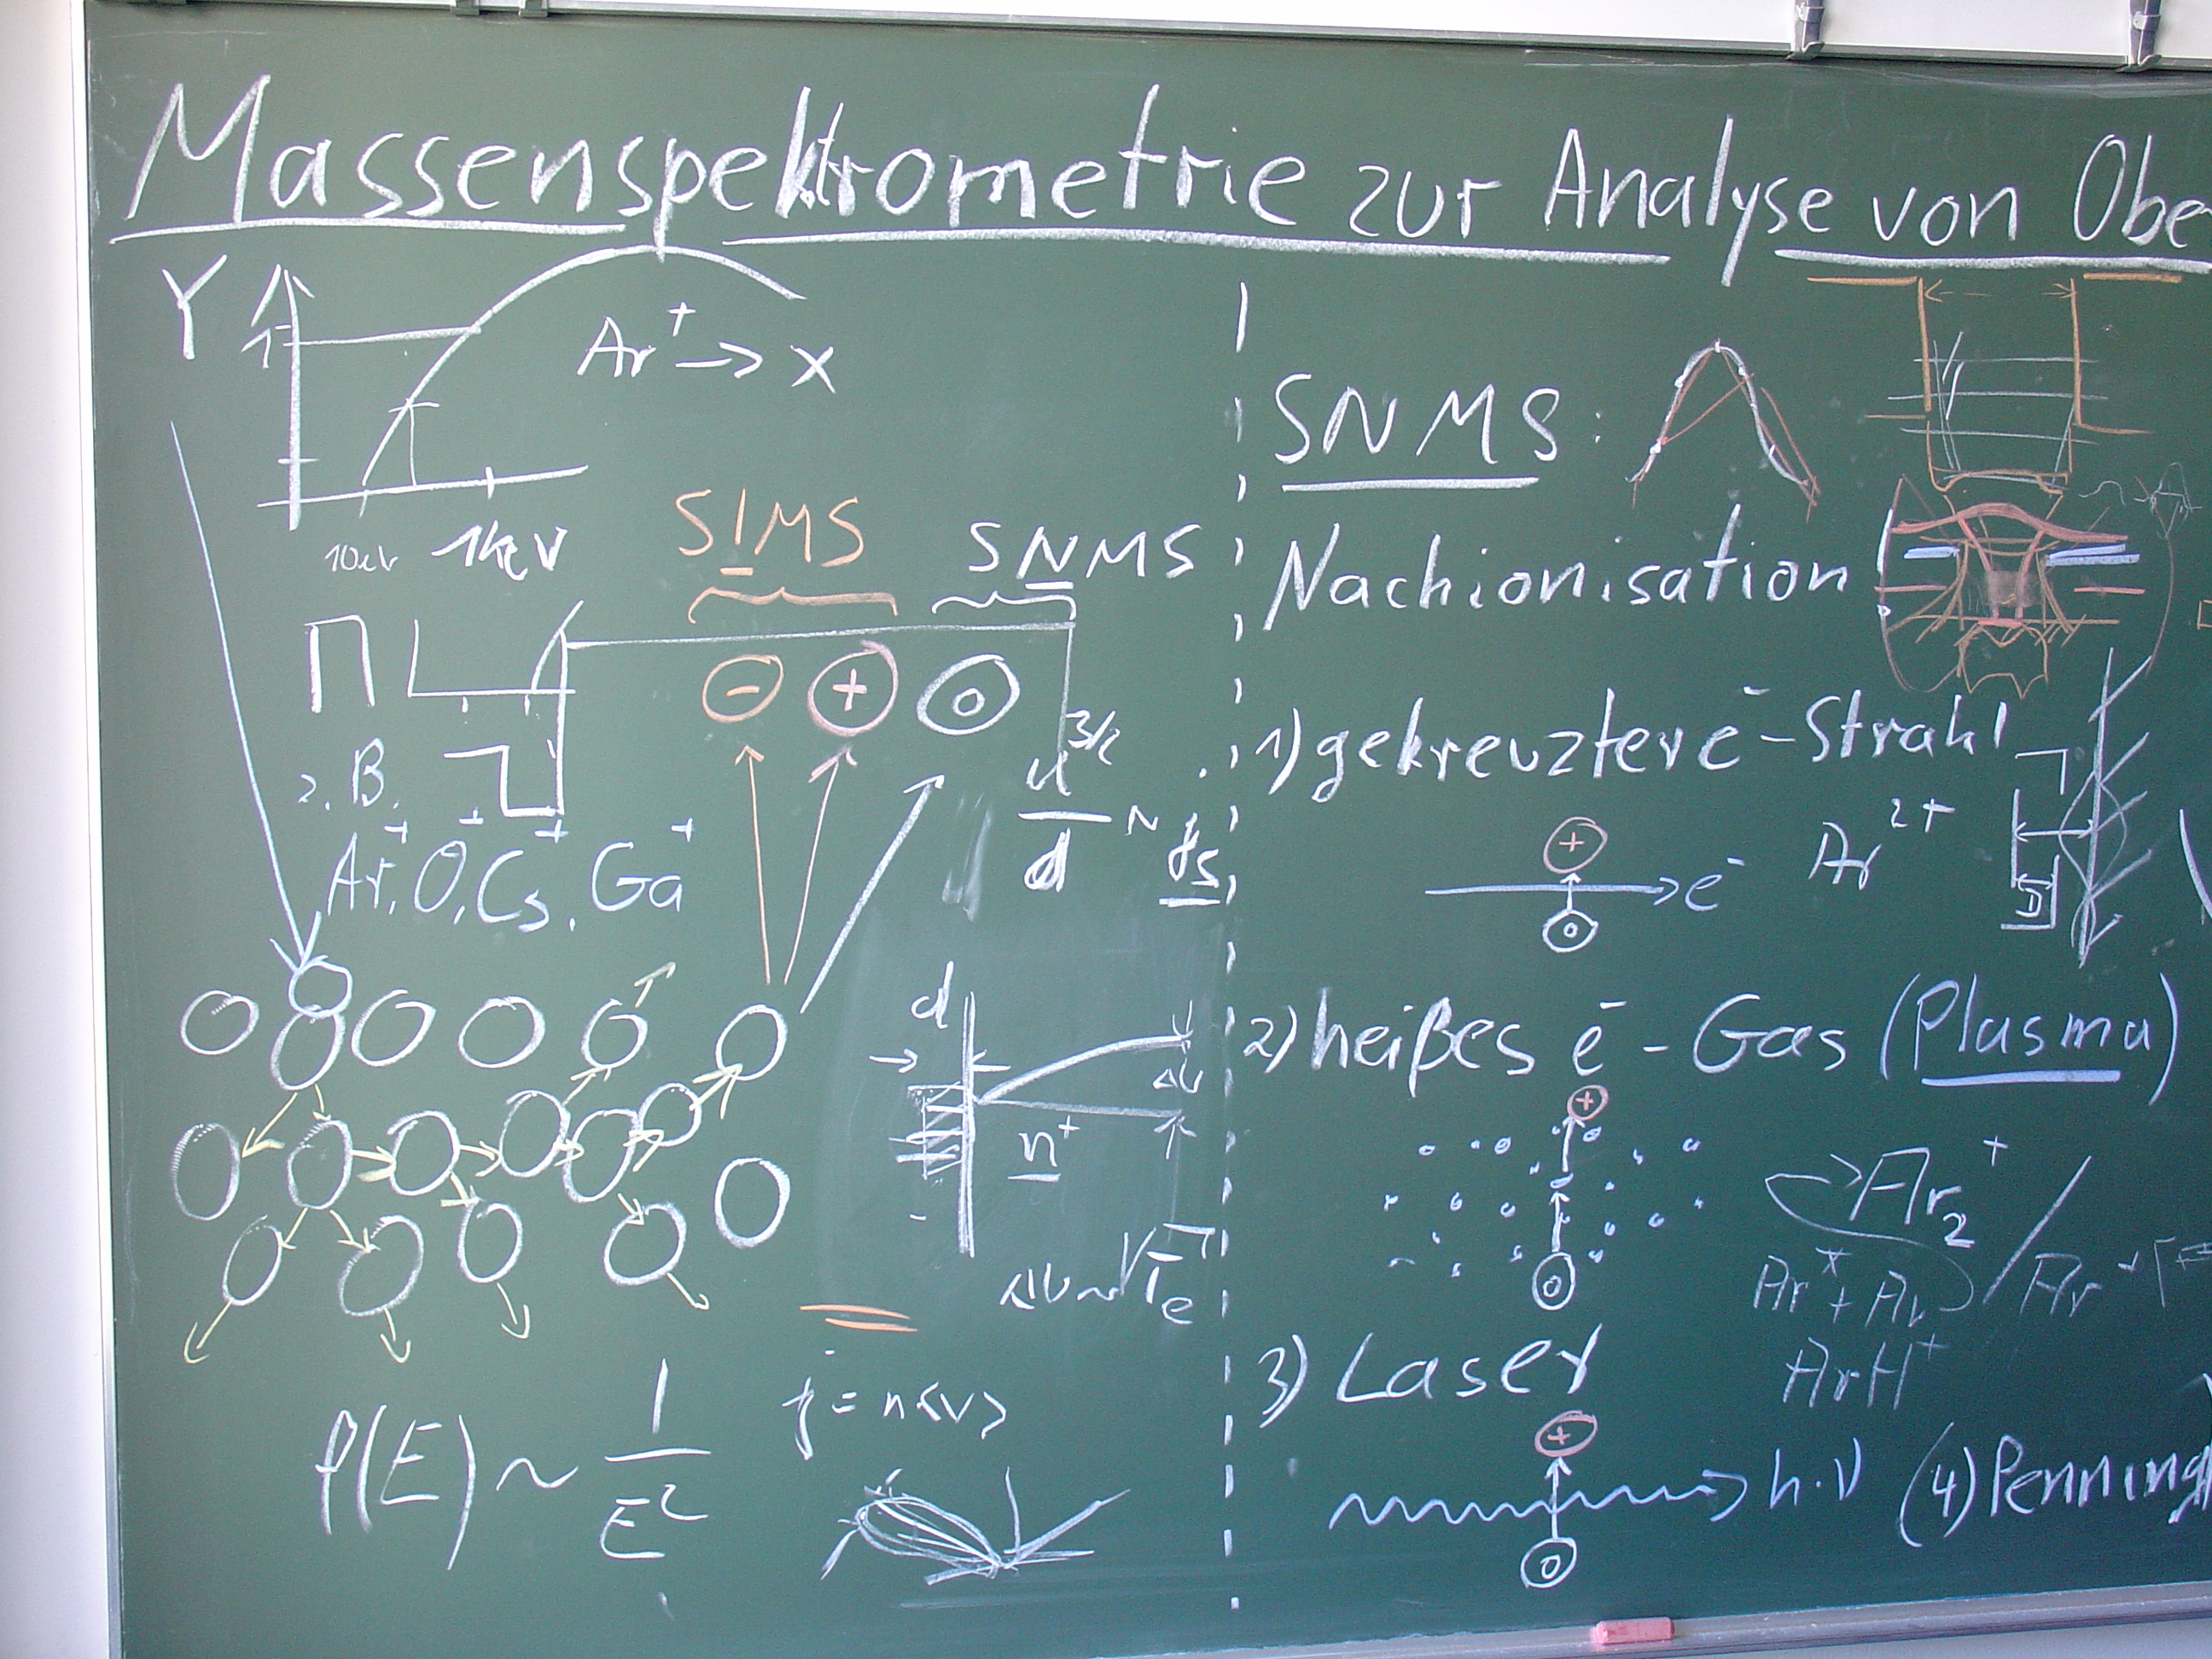 Massenspektrometrie zur Analyse von Obe
Y
1
Ar⁺ → X
10eV 1keV
SIMS
SNMS
- + o
z.B.
Ar⁺, O⁺, Cs⁺, Ga⁺
U^3/2
d
~ js
d
n⁺
ΔU
ΔU ~ √Te
j = n<v>
P(E) ~ 1
E²
SNMS:
Nachionisation
1) gekreuzter e⁻-Strahl
+
e⁻
o
Ar²⁺
D
2) heißes e⁻ - Gas (Plasma)
+
o
Ar₂⁺
Ar* + Ar
ArH⁺
3) Laser
+
h·ν
o
(4) Penning